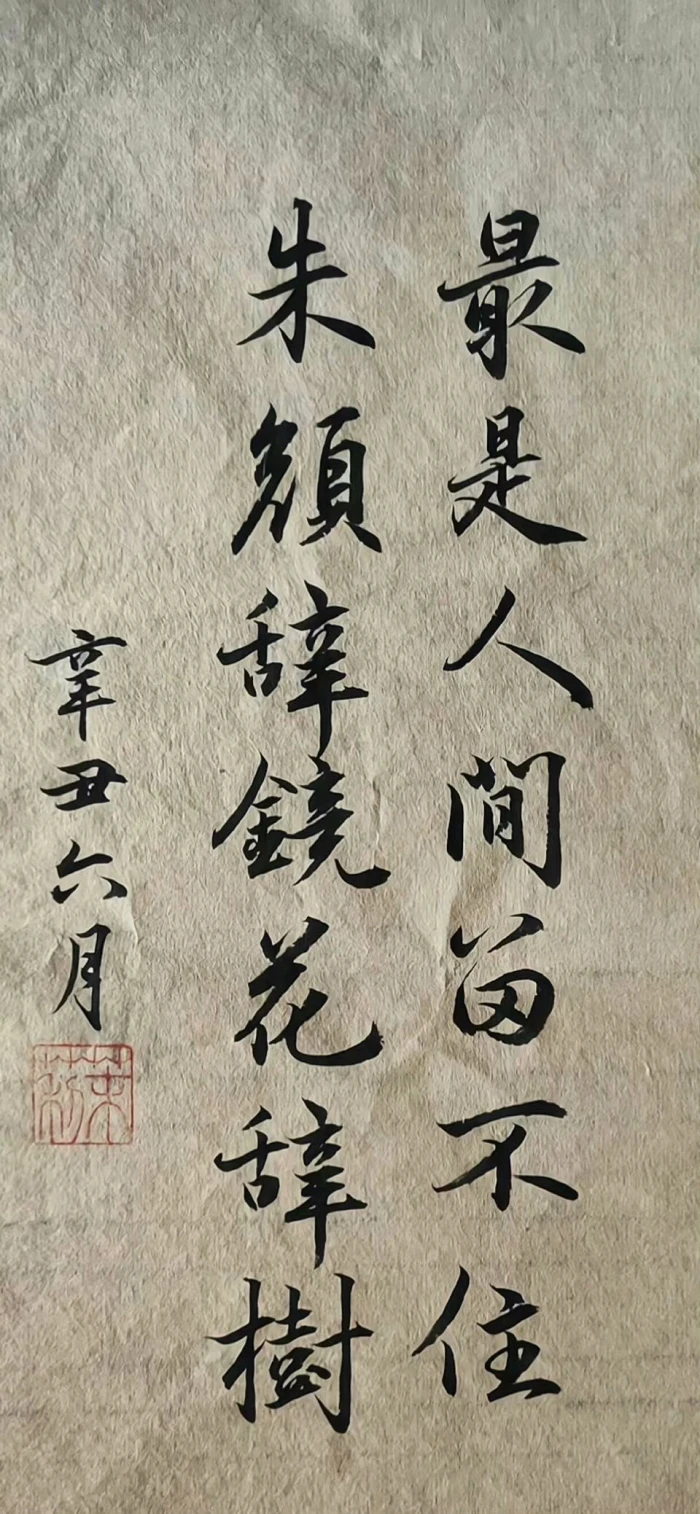 最是人間留不住
朱顏辞鏡花辞樹
辛丑六月